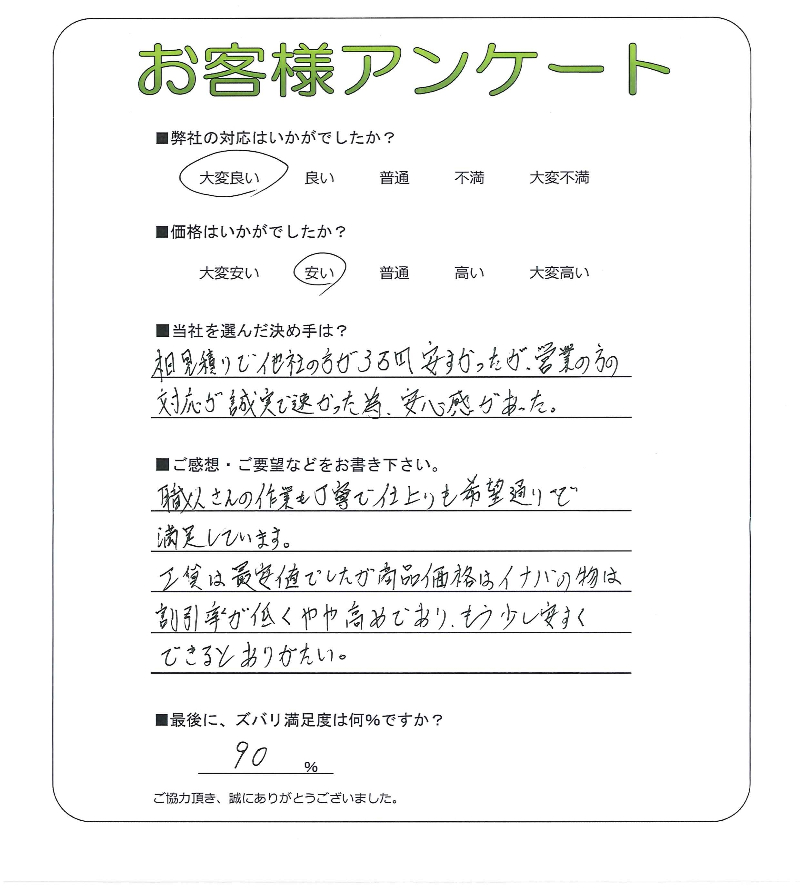 お客様アンケート
■弊社の対応はいかがでしたか？
大変良い 良い 普通 不満 大変不満
■価格はいかがでしたか？
大変安い 安い 普通 高い 大変高い
■当社を選んだ決め手は？
相見積りで他社の方が3万円安すかったが、営業の方の
対応が誠実で速かった為、安心感があった。
■ご感想・ご要望などをお書き下さい。
職人さんの作業も丁寧で仕上りも希望通りで
満足しています。
工賃は最安値でしたが商品価格はイナバの物は
割引率が低くやや高めであり、もう少し安すく
できるとありがたい。
■最後に、ズバリ満足度は何%ですか？
90 %
ご協力頂き、誠にありがとうございました。